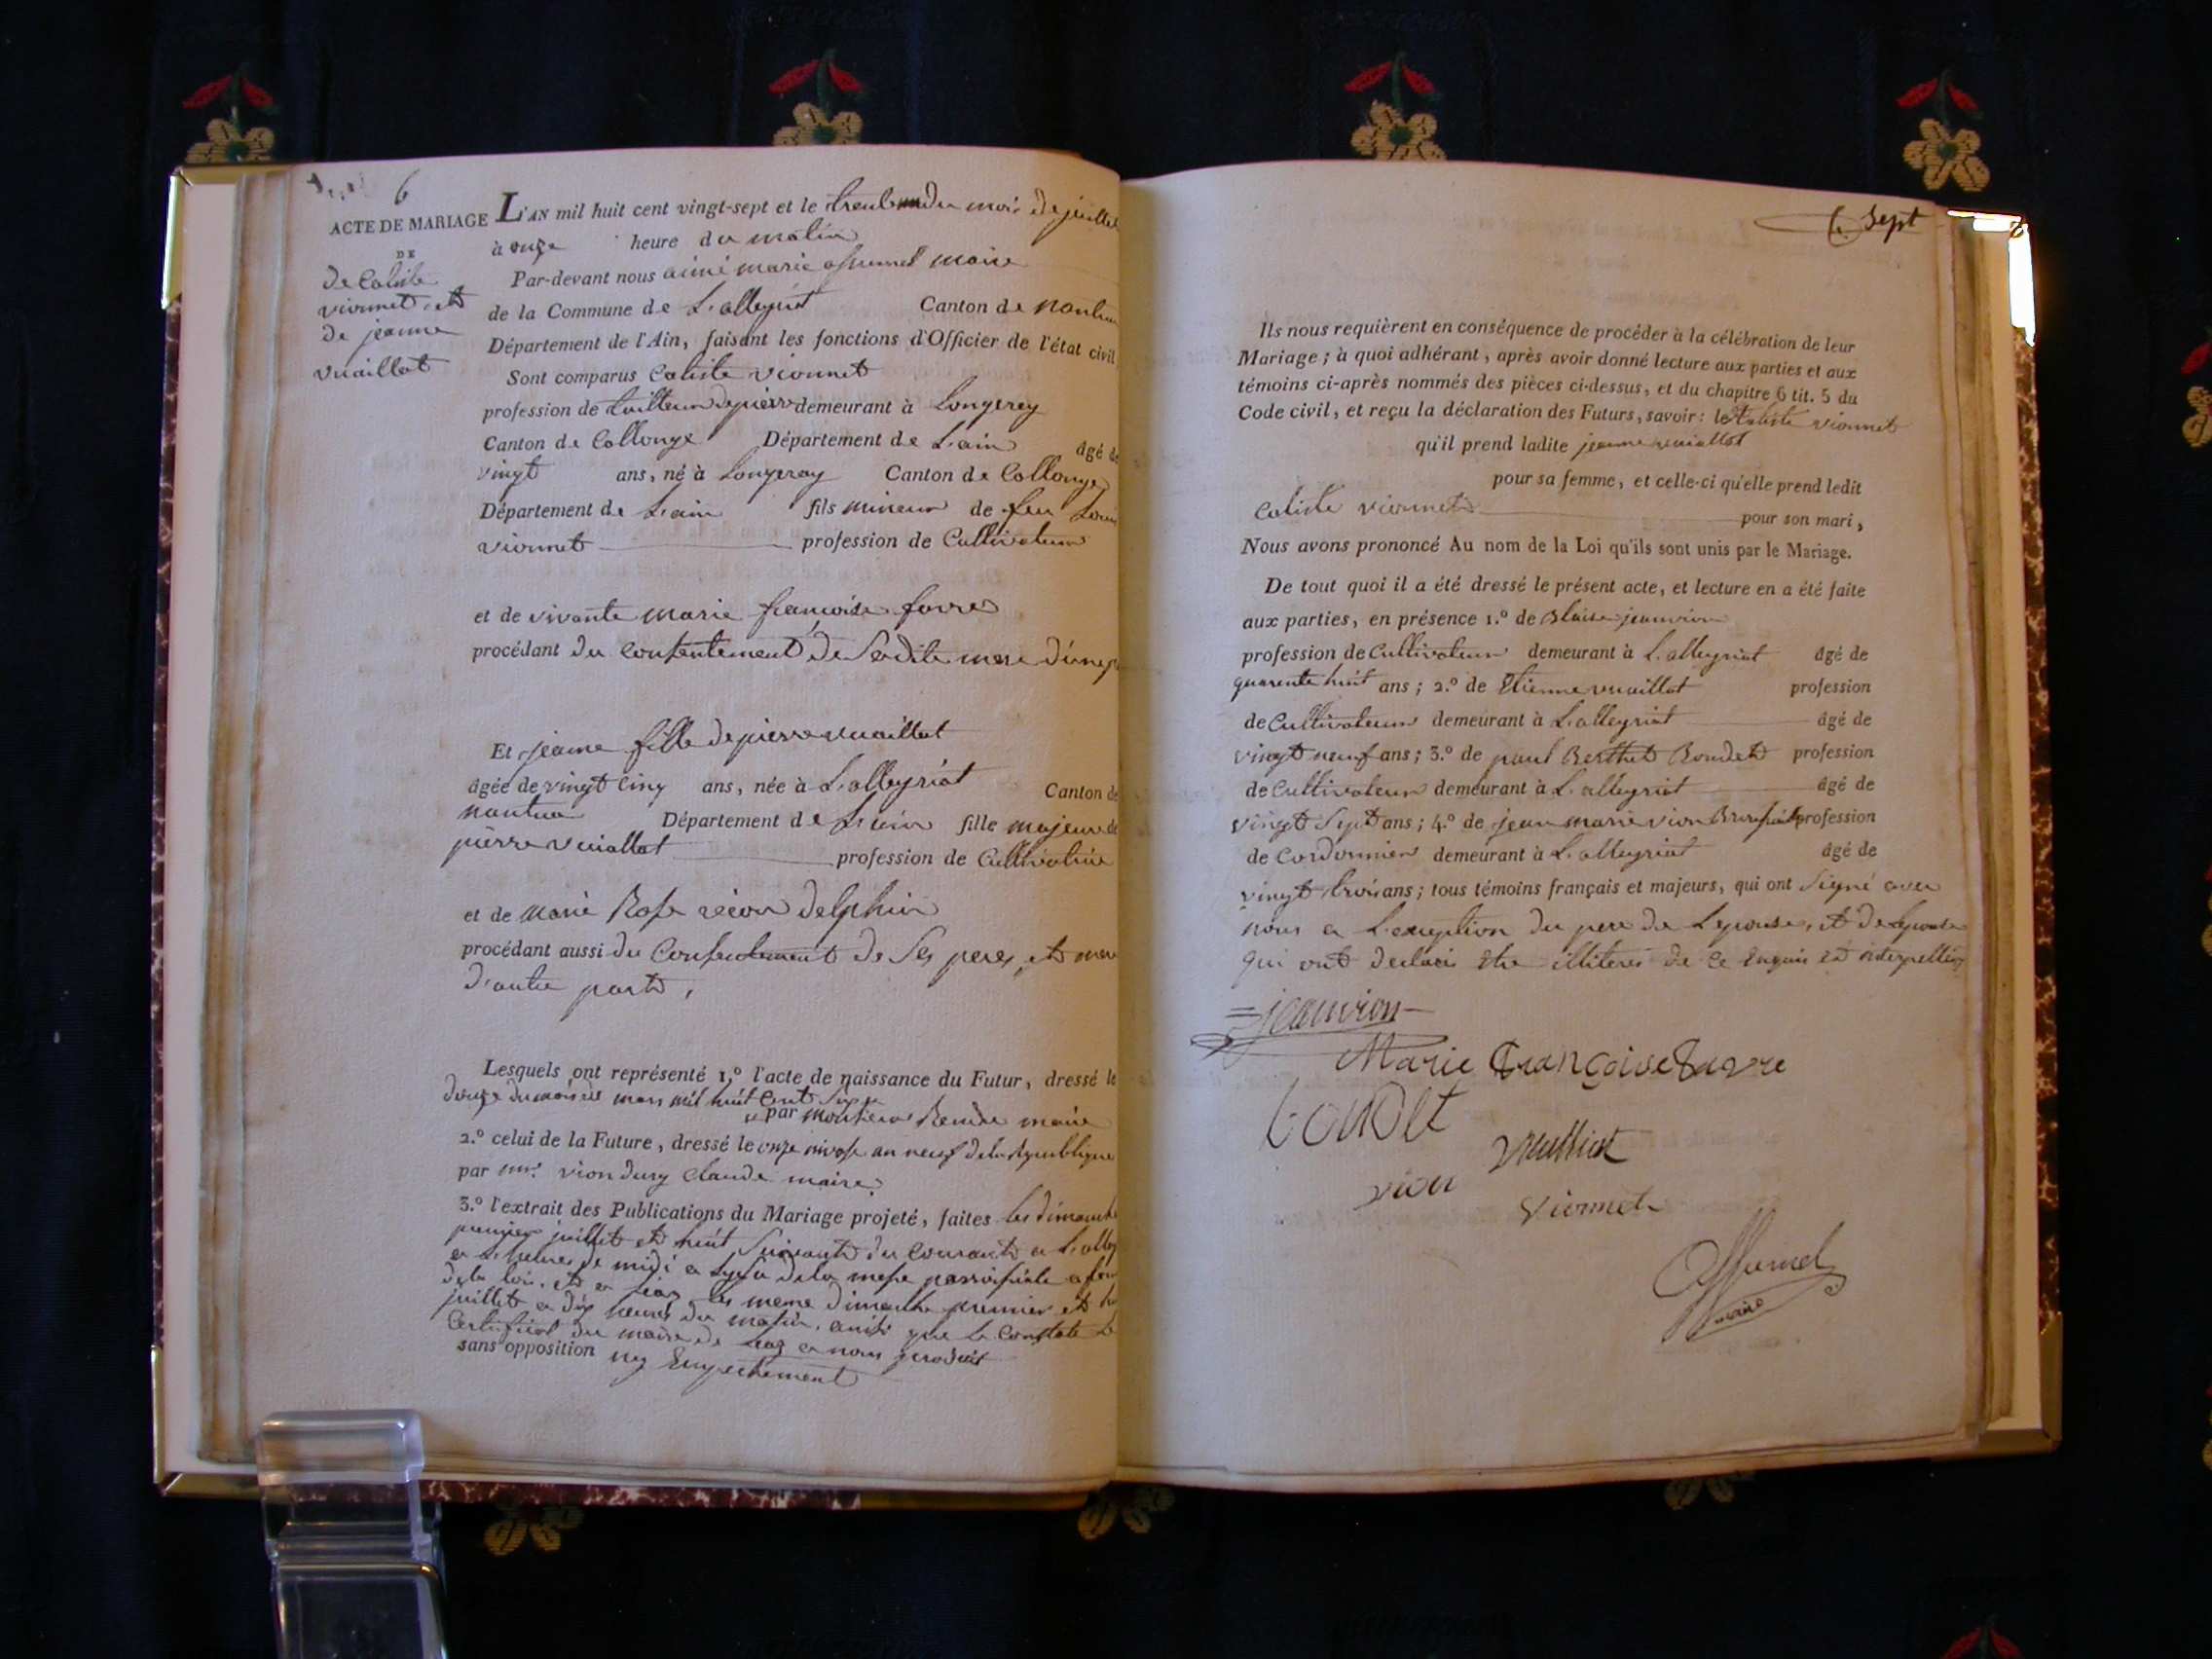 6
ACTE DE MARIAGE
DE
de Caliste
vionnet, et
de jeanne
vuaillat
L'AN mil huit cent vingt-sept et le trente du mois de juillet
à onze heure du matin
Par-devant nous aimé marie assumel maire
de la Commune de L'alleyriat Canton de nantua
Département de l'Ain, faisant les fonctions d'Officier de l'état civil
Sont comparus Caliste vionnet
profession de tailleur de pierre demeurant à Longerey
Canton de Collonge Département de L'ain âgé de
vingt ans, né à Longeray Canton de Collonge
Département de L'ain fils mineur de feu Louis
vionnet profession de Cultivateur
et de vivante marie françoise favre
procédant du Consentement de Sadite mere d'une p
Et jeanne fille de pierre vuaillat
âgée de vingt Cinq ans, née à L'alleyriat Canton de
nantua Département de L'ain fille majeure de
pierre vuiallat profession de Cultivatrice
et de marie Rose Delphin
procédant aussi du Consentement de Ses peres et mere
d'autre part,
Lesquels ont représenté 1.º l'acte de naissance du Futur, dressé le
douze du mois de mars mil huit Cent Sept
par monsieur maire
2.º celui de la Future, dressé le onze nivose an neuf de la Republique
par mr. vion dury Claude maire.
3.º l'extrait des Publications du Mariage projeté, faites les dimanche
premier juillet et huit Suivant du Courant a L'alley
a heures de midi a de la messe parroissiale a for
de la loi, et a Leaz les meme dimanche premier et h
juillet a dix heures du matin, ainsi que le Constate le
Certificat du maire de Leaz a nous produit
sans opposition ny Empechement
6 Sept
Ils nous requièrent en conséquence de procéder à la célébration de leur
Mariage ; à quoi adhérant, après avoir donné lecture aux parties et aux
témoins ci-après nommés des pièces ci-dessus, et du chapitre 6 tit. 5 du
Code civil, et reçu la déclaration des Futurs, savoir : le Caliste vionnet
qu'il prend ladite jeanne vuiallat
pour sa femme, et celle-ci qu'elle prend ledit
Caliste vionnet pour son mari,
Nous avons prononcé Au nom de la Loi qu'ils sont unis par le Mariage.
De tout quoi il a été dressé le présent acte, et lecture en a été faite
aux parties, en présence 1.º de Blaise jeanvion
profession de Cultivateur demeurant à L'alleyriat âgé de
quarente huit ans ; 2.º de Etienne vuaillat profession
de Cultivateur demeurant à L'alleyriat âgé de
vingt neuf ans ; 3.º de paul Berthet Bondet profession
de Cultivateur demeurant à L'alleyriat âgé de
vingt Sept ans ; 4.º de jean marie vion profession
de Cordonnier demeurant à L'alleyriat âgé de
vingt trois ans ; tous témoins français et majeurs, qui ont Signé avec
nous a L'exeption du pere de Lepouse, et de Lepouse
qui ont declaré Etre illiteres de ce Enquis et interpellés
jeanvion
Marie françoise Favre
Bondet
vuilliat
vion
vionnet
Assumel
maire